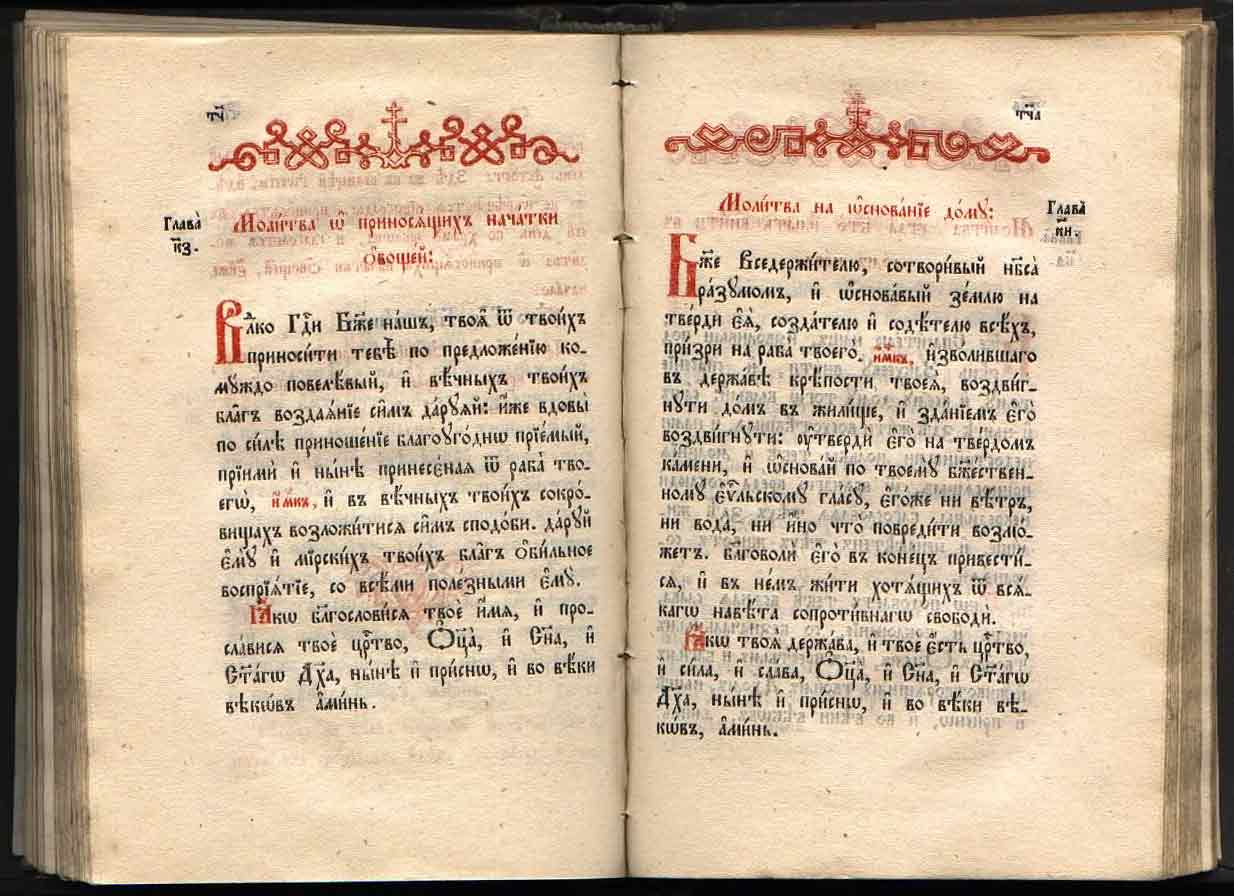 тч҃
Глава̀ к҃з.
Моли́тва ѡ҆ приносѧ́щихъ нача́тки
ѻ҆вощей:
Влⷣко Гдⷭ҇и Бж҃е на́шъ, твоѧ̑ ѿ твои́хъ
приноси́ти тебѣ̀ по предложе́нїю ко-
муждо повелѣ́вый, и҆ вѣ́чныхъ твои́хъ
бла̑гъ воздаѧ́нїе си̑мъ да́руѧй: и҆́же вдовы̀
по си́лѣ приноше́нїе благоуго́днѡ прїе́мый,
прїимѝ и҆ ны́нѣ принесе́наѧ ѿ раба̀ тво-
егѡ̀, и҆́м҃къ, и҆ въ вѣ́чныхъ твои́хъ сокро́-
вищахъ возложи́тисѧ си̑мъ сподо́би. да́руй
є҆мꙋ̀ и҆ мїрски́хъ твои́хъ бла̑гъ ѻ҆би́льное
воспрїѧ́тїе, со всѣ́ми поле́зными є҆мꙋ̀.
Ꙗ҆́кѡ бл҃гослови́сѧ твоѐ и҆́мѧ, и҆ про-
сла́висѧ твоѐ црⷭ҇тво, Ѻ҆ц҃а̀, и҆ Сн҃а, и҆
Ст҃а́гѡ Дх҃а, ны́нѣ и҆ при́снѡ, и҆ во вѣ́ки
вѣкѡ́въ а҆ми́нь.
тч҃а
Глава̀ к҃и.
Моли́тва на ѡ҆снова́нїе до́мꙋ:
Бж҃е Вседержи́телю, сотвори́вый нб҃са̀
ра́зумомъ, и҆ ѡ҆снова́вый зе́млю на
тве́рди є҆ѧ̀, созда́телю и҆ содѣ́телю всѣ́хъ,
при́зри на раба твоего. и҆́м҃къ, и҆зво́лившаго
въ держа́вѣ крѣ́пости твоеѧ̀, воздви́г-
нути до́мъ въ жили́ще, и҆ зда́нїемъ є҆го̀
воздви́гнути: ᲂу҆тверди є҆го̀ на тве́рдомъ
ка́мени, и҆ ѡ҆снова́й по твоему бж҃е́ствен-
ному є҆ѵⷢ҇льскому гла́сꙋ, є҆го́же ни вѣ́тръ,
ни вода̀, ни и҆́но что̀ повреди́ти возмо́-
жетъ. бл҃говоли є҆го̀ въ коне́цъ привести́-
сѧ, и҆ въ не́мъ жи́ти хотѧ́щихъ ѿ всѧ́-
кагѡ навѣ́та сопроти́внагѡ свободѝ.
Ꙗ҆́кѡ твоѧ̀ держа́ва, и҆ твое є҆́сть црⷭ҇тво,
и҆ си́ла, и҆ сла́ва, Ѻ҆ц҃а̀, и҆ Сн҃а, и҆ Ст҃а́гѡ
Дх҃а, ны́нѣ и҆ при́снѡ, и҆ во вѣ́ки вѣ-
кѡ́въ, а҆ми́нь.